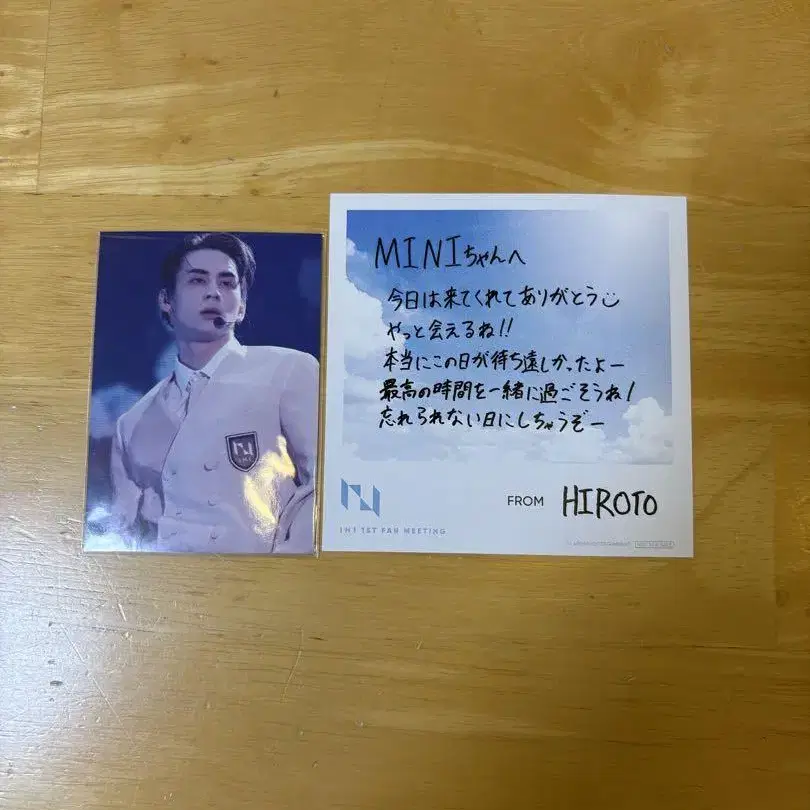 MINIちゃんへ
今日は来てくれてありがとう
やっと会えるね!!
本当にこの日が待ち遠しかったよー
最高の時間を一緒に過ごそうね!
忘れられない日にしちゃうぞー
FROM HIROTO
INI 1ST FAN MEETING